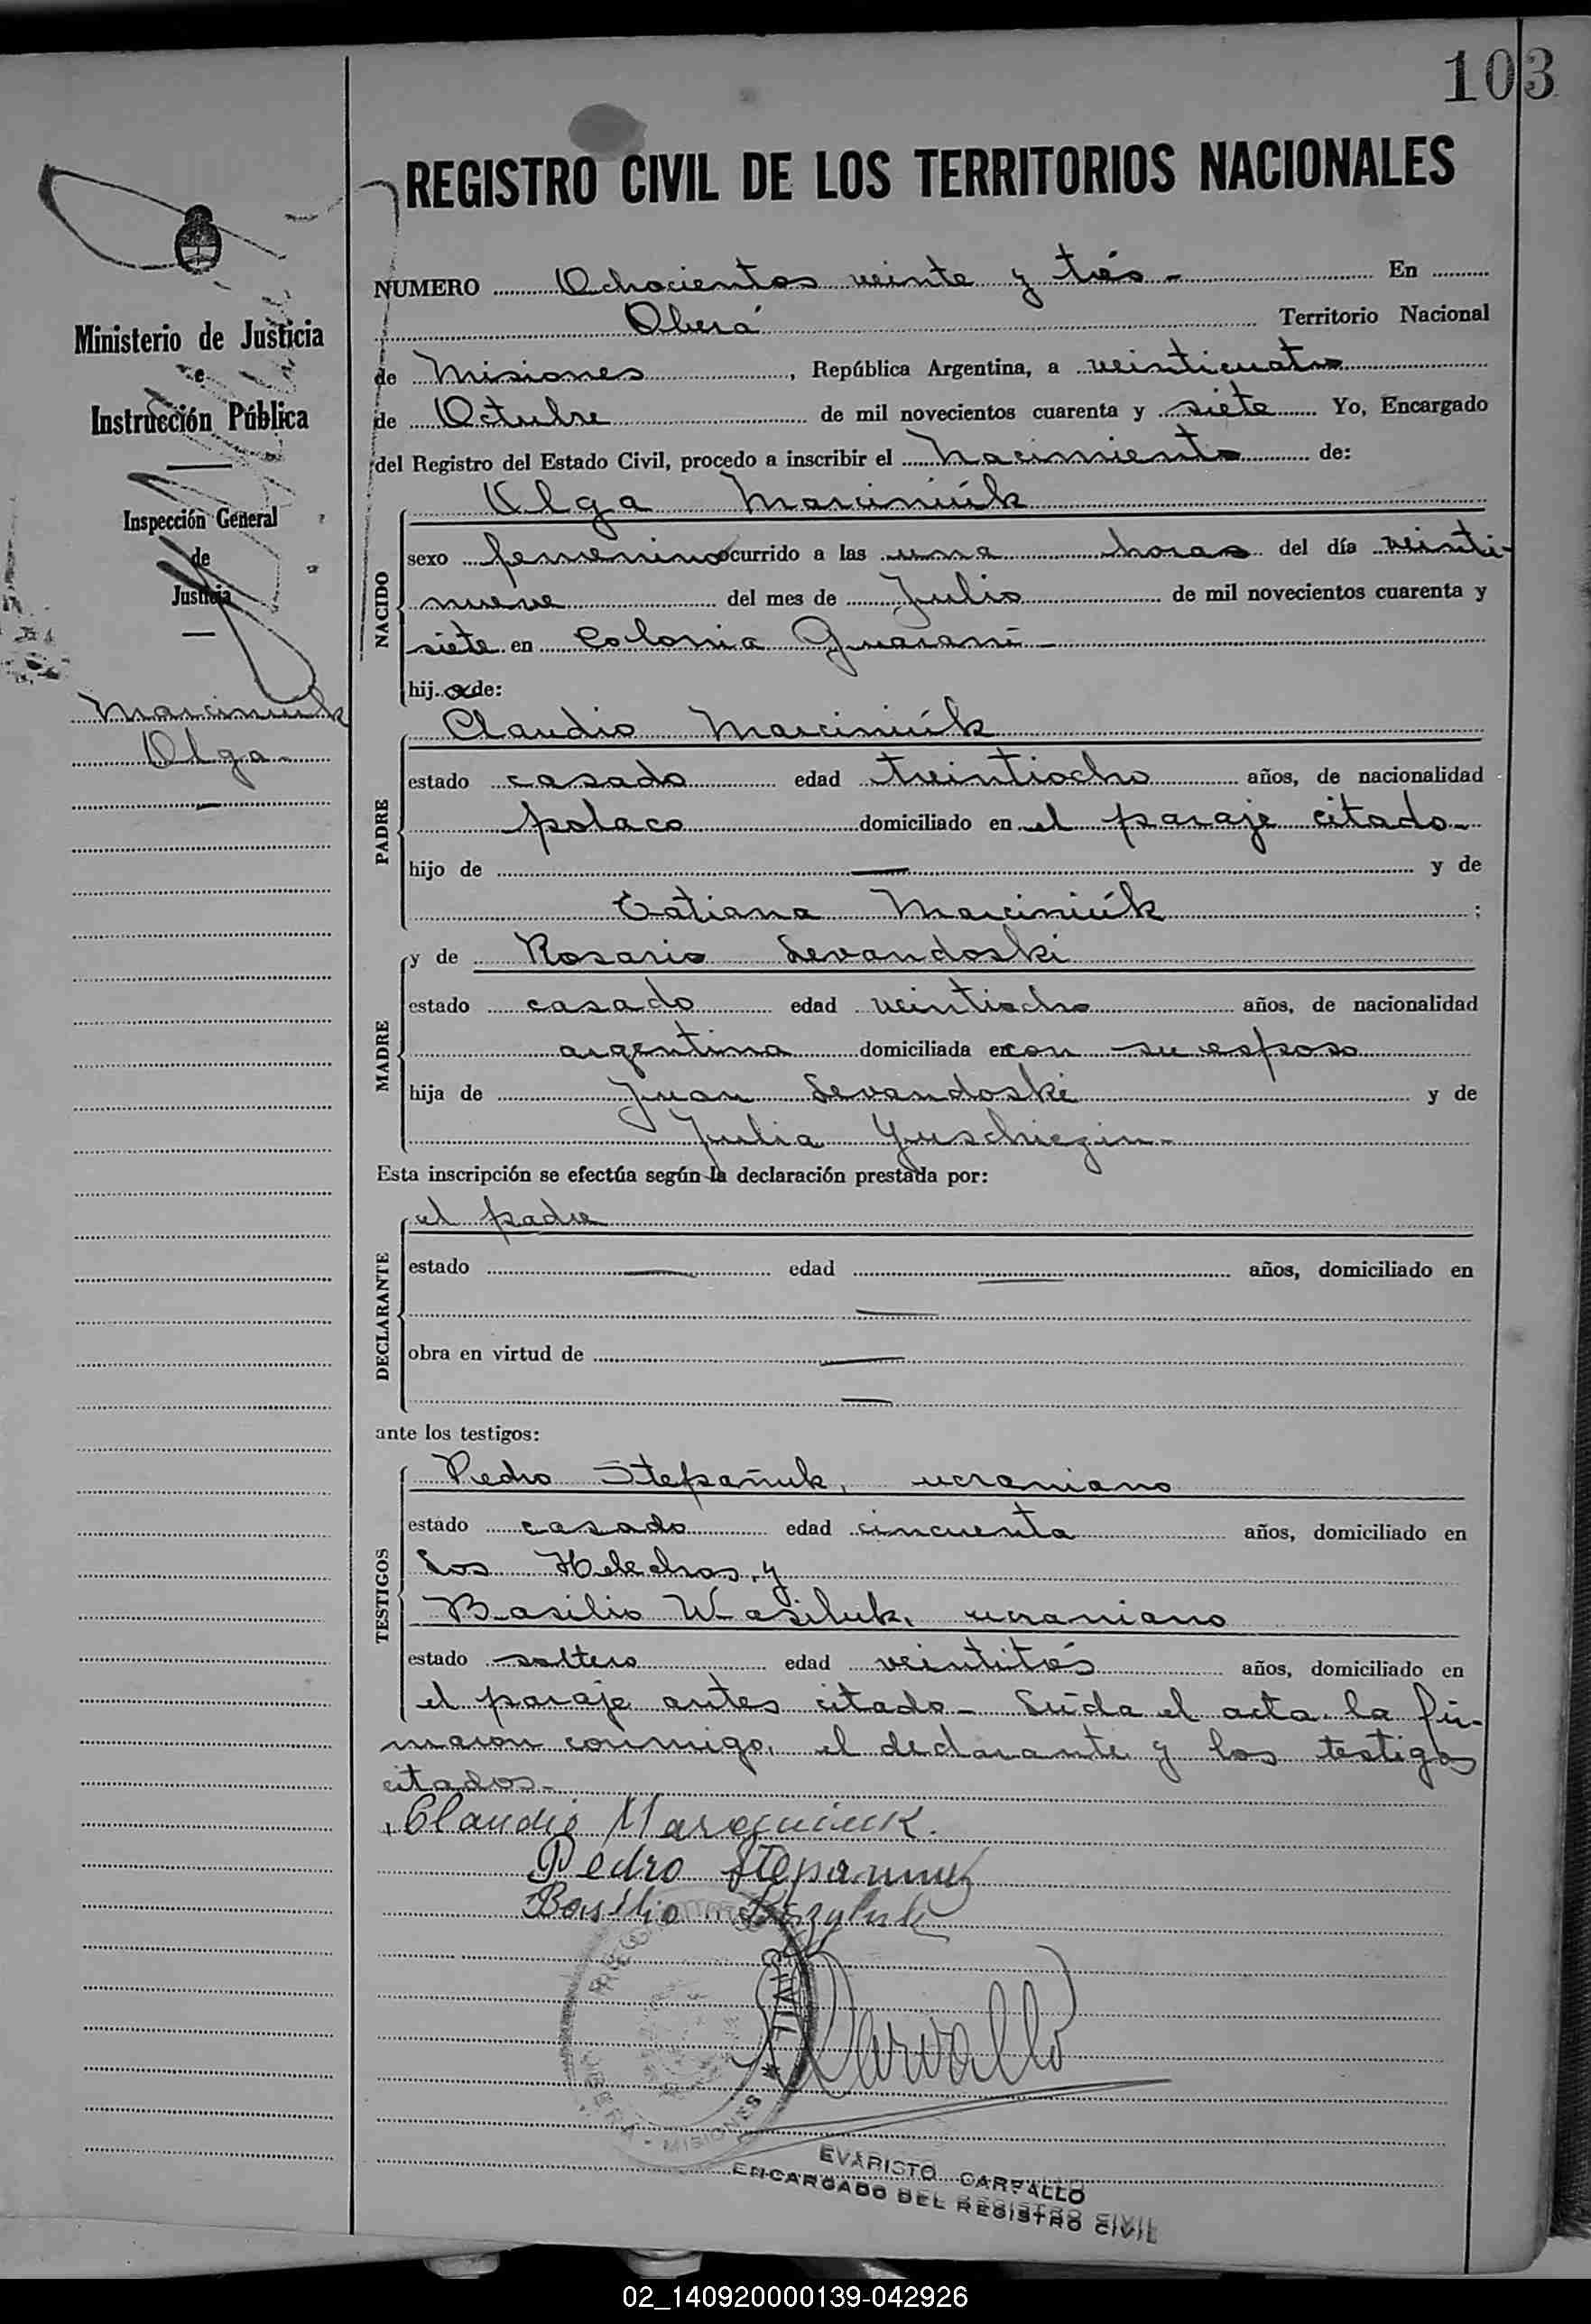 103
REGISTRO CIVIL DE LOS TERRITORIOS NACIONALES
Ministerio de Justicia
e
Instrucción Pública
Inspección General
de
Justicia
Marciniúk
Olga-
NUMERO Ochocientos veinte y trés- En
Oberá Territorio Nacional
de Misiones, República Argentina, a veinticuatro
de Octubre de mil novecientos cuarenta y siete Yo, Encargado
del Registro del Estado Civil, procedo a inscribir el Nacimiento de:
NACIDO
Olga Marciniúk
sexo femenino ocurrido a las una horas del día veinti-
nueve del mes de Julio de mil novecientos cuarenta y
siete en Colonia Guaraní-
hij a de:
PADRE
Claudio Marciniúk
estado casado edad treintiocho años, de nacionalidad
polaco domiciliado en el paraje citado-
hijo de — y de
Tatiana Marciniúk ;
MADRE
y de Rosario Levandoski
estado casado edad veintiocho años, de nacionalidad
argentina domiciliada en con su esposo
hija de Juan Levandoski y de
Julia Yuschiezin-
Esta inscripción se efectúa según la declaración prestada por:
DECLARANTE
el padre
estado — edad — años, domiciliado en
—
obra en virtud de —
—
ante los testigos:
TESTIGOS
Pedro Stepañuk, ucraniano
estado casado edad cincuenta años, domiciliado en
Los Helechos, y
Basilio Wasiluk, ucraniano
estado soltero edad veintitrés años, domiciliado en
el paraje antes citado- Leída el acta la fir-
maron conmigo, el declarante y los testigos
citados-
Claudio Marciniuk.
Pedro
Basilio
CIVIL * MISIONES
Carvallo
EVARISTO CARVALLO
ENCARGADO DEL REGISTRO CIVIL
02_140920000139-042926